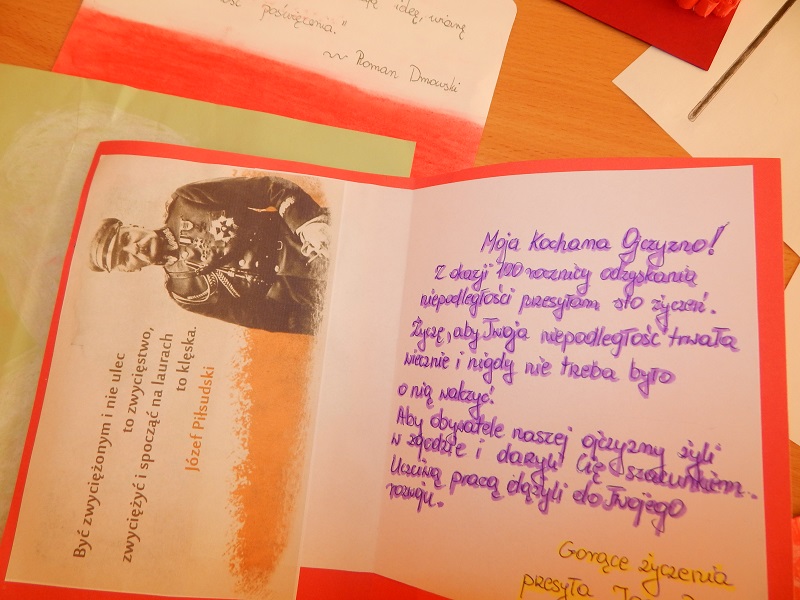 ideę, wiarę
poświęcenia."
~ Roman Dmowski
Być zwyciężonym i nie ulec
to zwycięstwo,
zwyciężyć i spocząć na laurach
to klęska.
Józef Piłsudski
Moja Kochana Ojczyzno!
Z okazji 100 rocznicy odzyskania
niepodległości przesyłam sto życzeń.
Życzę, aby Twoja niepodległość trwała
wiecznie i nigdy nie trzeba było
o nią walczyć!
Aby obywatele naszej ojczyzny żyli
w zgodzie i darzyli Cię szacunkiem.
Uczciwą pracą dążyli do Twojego
rozwoju.
Gorące życzenia
przesyła